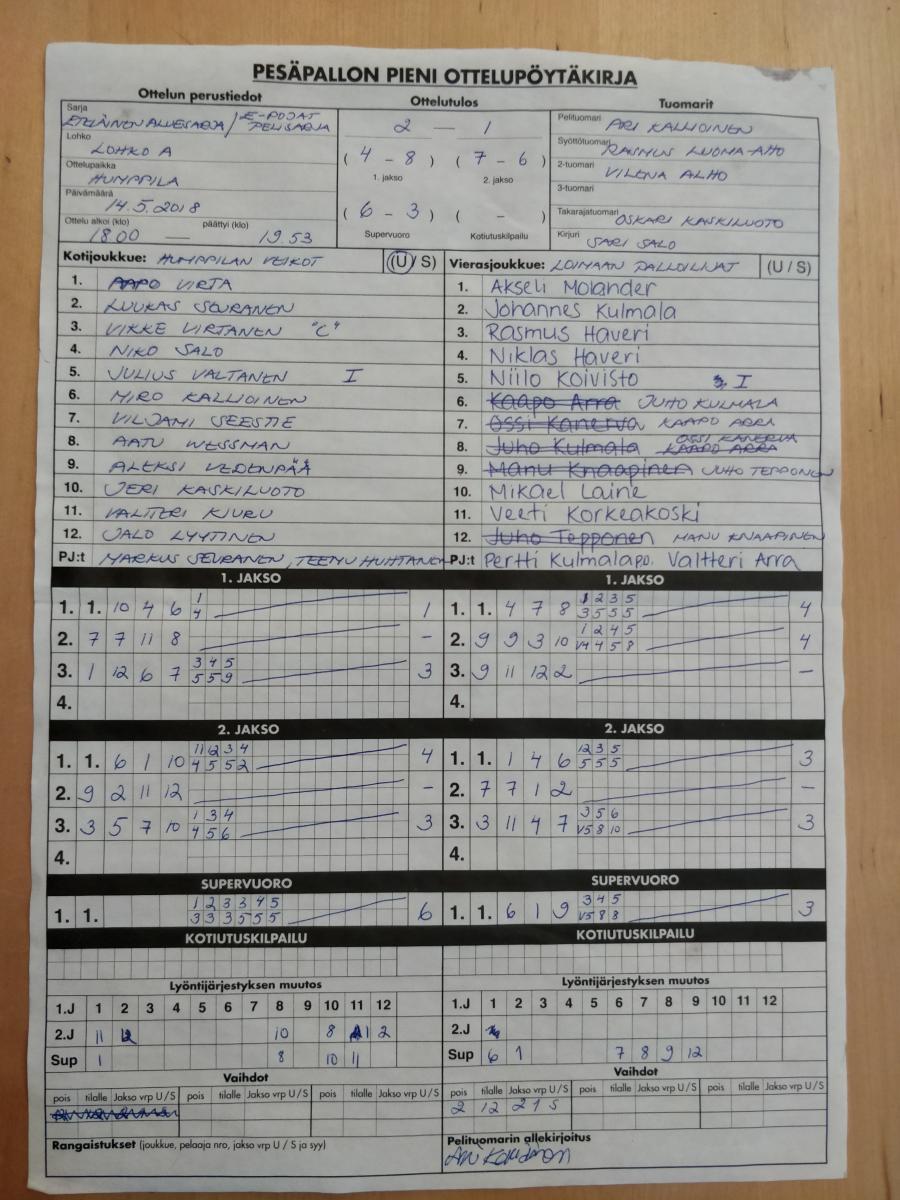 PESÄPALLON PIENI OTTELUPÖYTÄKIRJA
Ottelun perustiedot
Ottelutulos
Tuomarit
Sarja
ETELÄINEN ALUESARJA / E-POJAT PELISARJA
Lohko
LOHKO A
Ottelupaikka
HUMPPILA
Päivämäärä
14.5.2018
Ottelu alkoi (klo) päättyi (klo)
18.00 — 19.53
2 — 1
( 4 - 8 ) ( 7 - 6 )
1. jakso 2. jakso
( 6 - 3 ) ( - )
Supervuoro Kotiutuskilpailu
Pelituomari ARI KALLIOINEN
Syöttötuomari RASMUS LUOMA-AHO
2-tuomari VILENA ALHO
3-tuomari
Takarajatuomari OSKARI KASKILUOTO
Kirjuri SARI SALO
Kotijoukkue: HUMPPILAN VEIKOT (U / S)
1. AAPO VIRTA
2. LUUKAS SEURANEN
3. VIKKE VIRTANEN "C"
4. NIKO SALO
5. JULIUS VALTANEN I
6. MIRO KALLIOINEN
7. VILJAMI SEESTIE
8. AATU WESSMAN
9. ALEKSI VEDENPÄÄ
10. JERI KASKILUOTO
11. VALTTERI KIURU
12. JALO LYYTINEN
PJ:t MARKUS SEURANEN, TEEMU HUHTANEN
Vierasjoukkue: LOIMAAN PALLOILIJAT (U / S)
1. Akseli Molander
2. Johannes Kulmala
3. Rasmus Haveri
4. Niklas Haveri
5. Niilo Koivisto I
6. Kaapo Arra JUHO KULMALA
7. Ossi Kanerva KAAPO ARRA
8. Juho Kulmala KAAPO ARRA OSSI KANERVA
9. Manu Knaapinen JUHO TEPPONEN
10. Mikael Laine
11. Veeti Korkeakoski
12. Juho Tepponen MANU KNAAPINEN
PJ:t Pertti Kulmalapo. Valtteri Arra
1. JAKSO
1. 1. 10 4 6 1 1
4
2. 7 7 11 8 -
3. 1 12 6 7 3 4 5 3
5 5 9
4.
1. JAKSO
1. 1. 4 7 8 1 2 3 5 4
3 5 5 5
2. 9 9 3 10 1 2 4 5 4
V4 4 5 8
3. 9 11 12 2 -
4.
2. JAKSO
1. 1. 6 1 10 11 2 3 4 4
4 5 5 2
2. 9 2 11 12 -
3. 3 5 7 10 1 3 4 3
4 5 6
4.
2. JAKSO
1. 1. 1 4 6 12 3 5 3
5 5 5
2. 7 7 1 2 -
3. 3 11 4 7 3 5 6 3
V5 8 10
4.
SUPERVUORO
1. 1. 1 2 3 3 4 5 6
3 3 3 5 5 5
SUPERVUORO
1. 1. 6 1 9 3 4 5 3
V5 8 8
KOTIUTUSKILPAILU
KOTIUTUSKILPAILU
Lyöntijärjestyksen muutos
1.J 1 2 3 4 5 6 7 8 9 10 11 12
2.J 11 10 8 1 2
Sup 1 8 10 11
Lyöntijärjestyksen muutos
1.J 1 2 3 4 5 6 7 8 9 10 11 12
2.J
Sup 6 1 7 8 9 12
Vaihdot
pois tilalle Jakso vrp U / S pois tilalle Jakso vrp U / S pois tilalle Jakso vrp U / S
Vaihdot
pois tilalle Jakso vrp U / S pois tilalle Jakso vrp U / S pois tilalle Jakso vrp U / S
2 12 2 1 S
Rangaistukset (joukkue, pelaaja nro, jakso vrp U / S ja syy)
Pelituomarin allekirjoitus